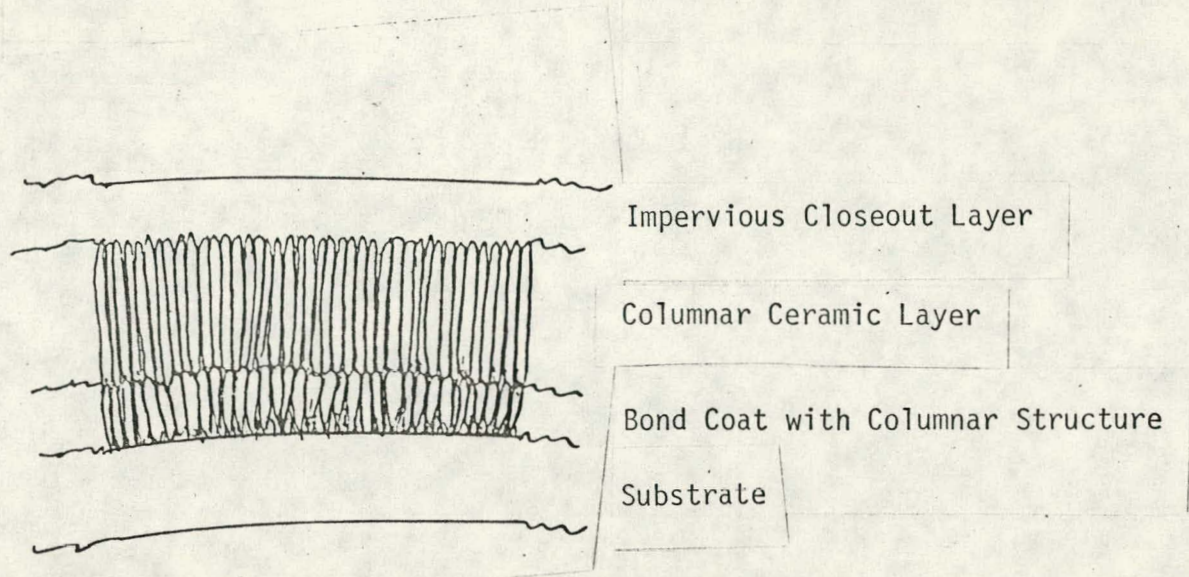 Impervious Closeout Layer
Columnar Ceramic Layer
Bond Coat with Columnar Structure
Substrate